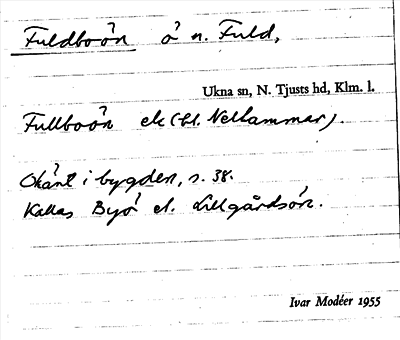 Fuldboön ö n. Fuld,
Ukna sn, N. Tjusts hd, Klm. l.
Fullboön ek (bl. Nelhammar).
Okänt i bygden, s. 38.
Kallas Byö el. Lillgårdsön.
Ivar Modéer 1955